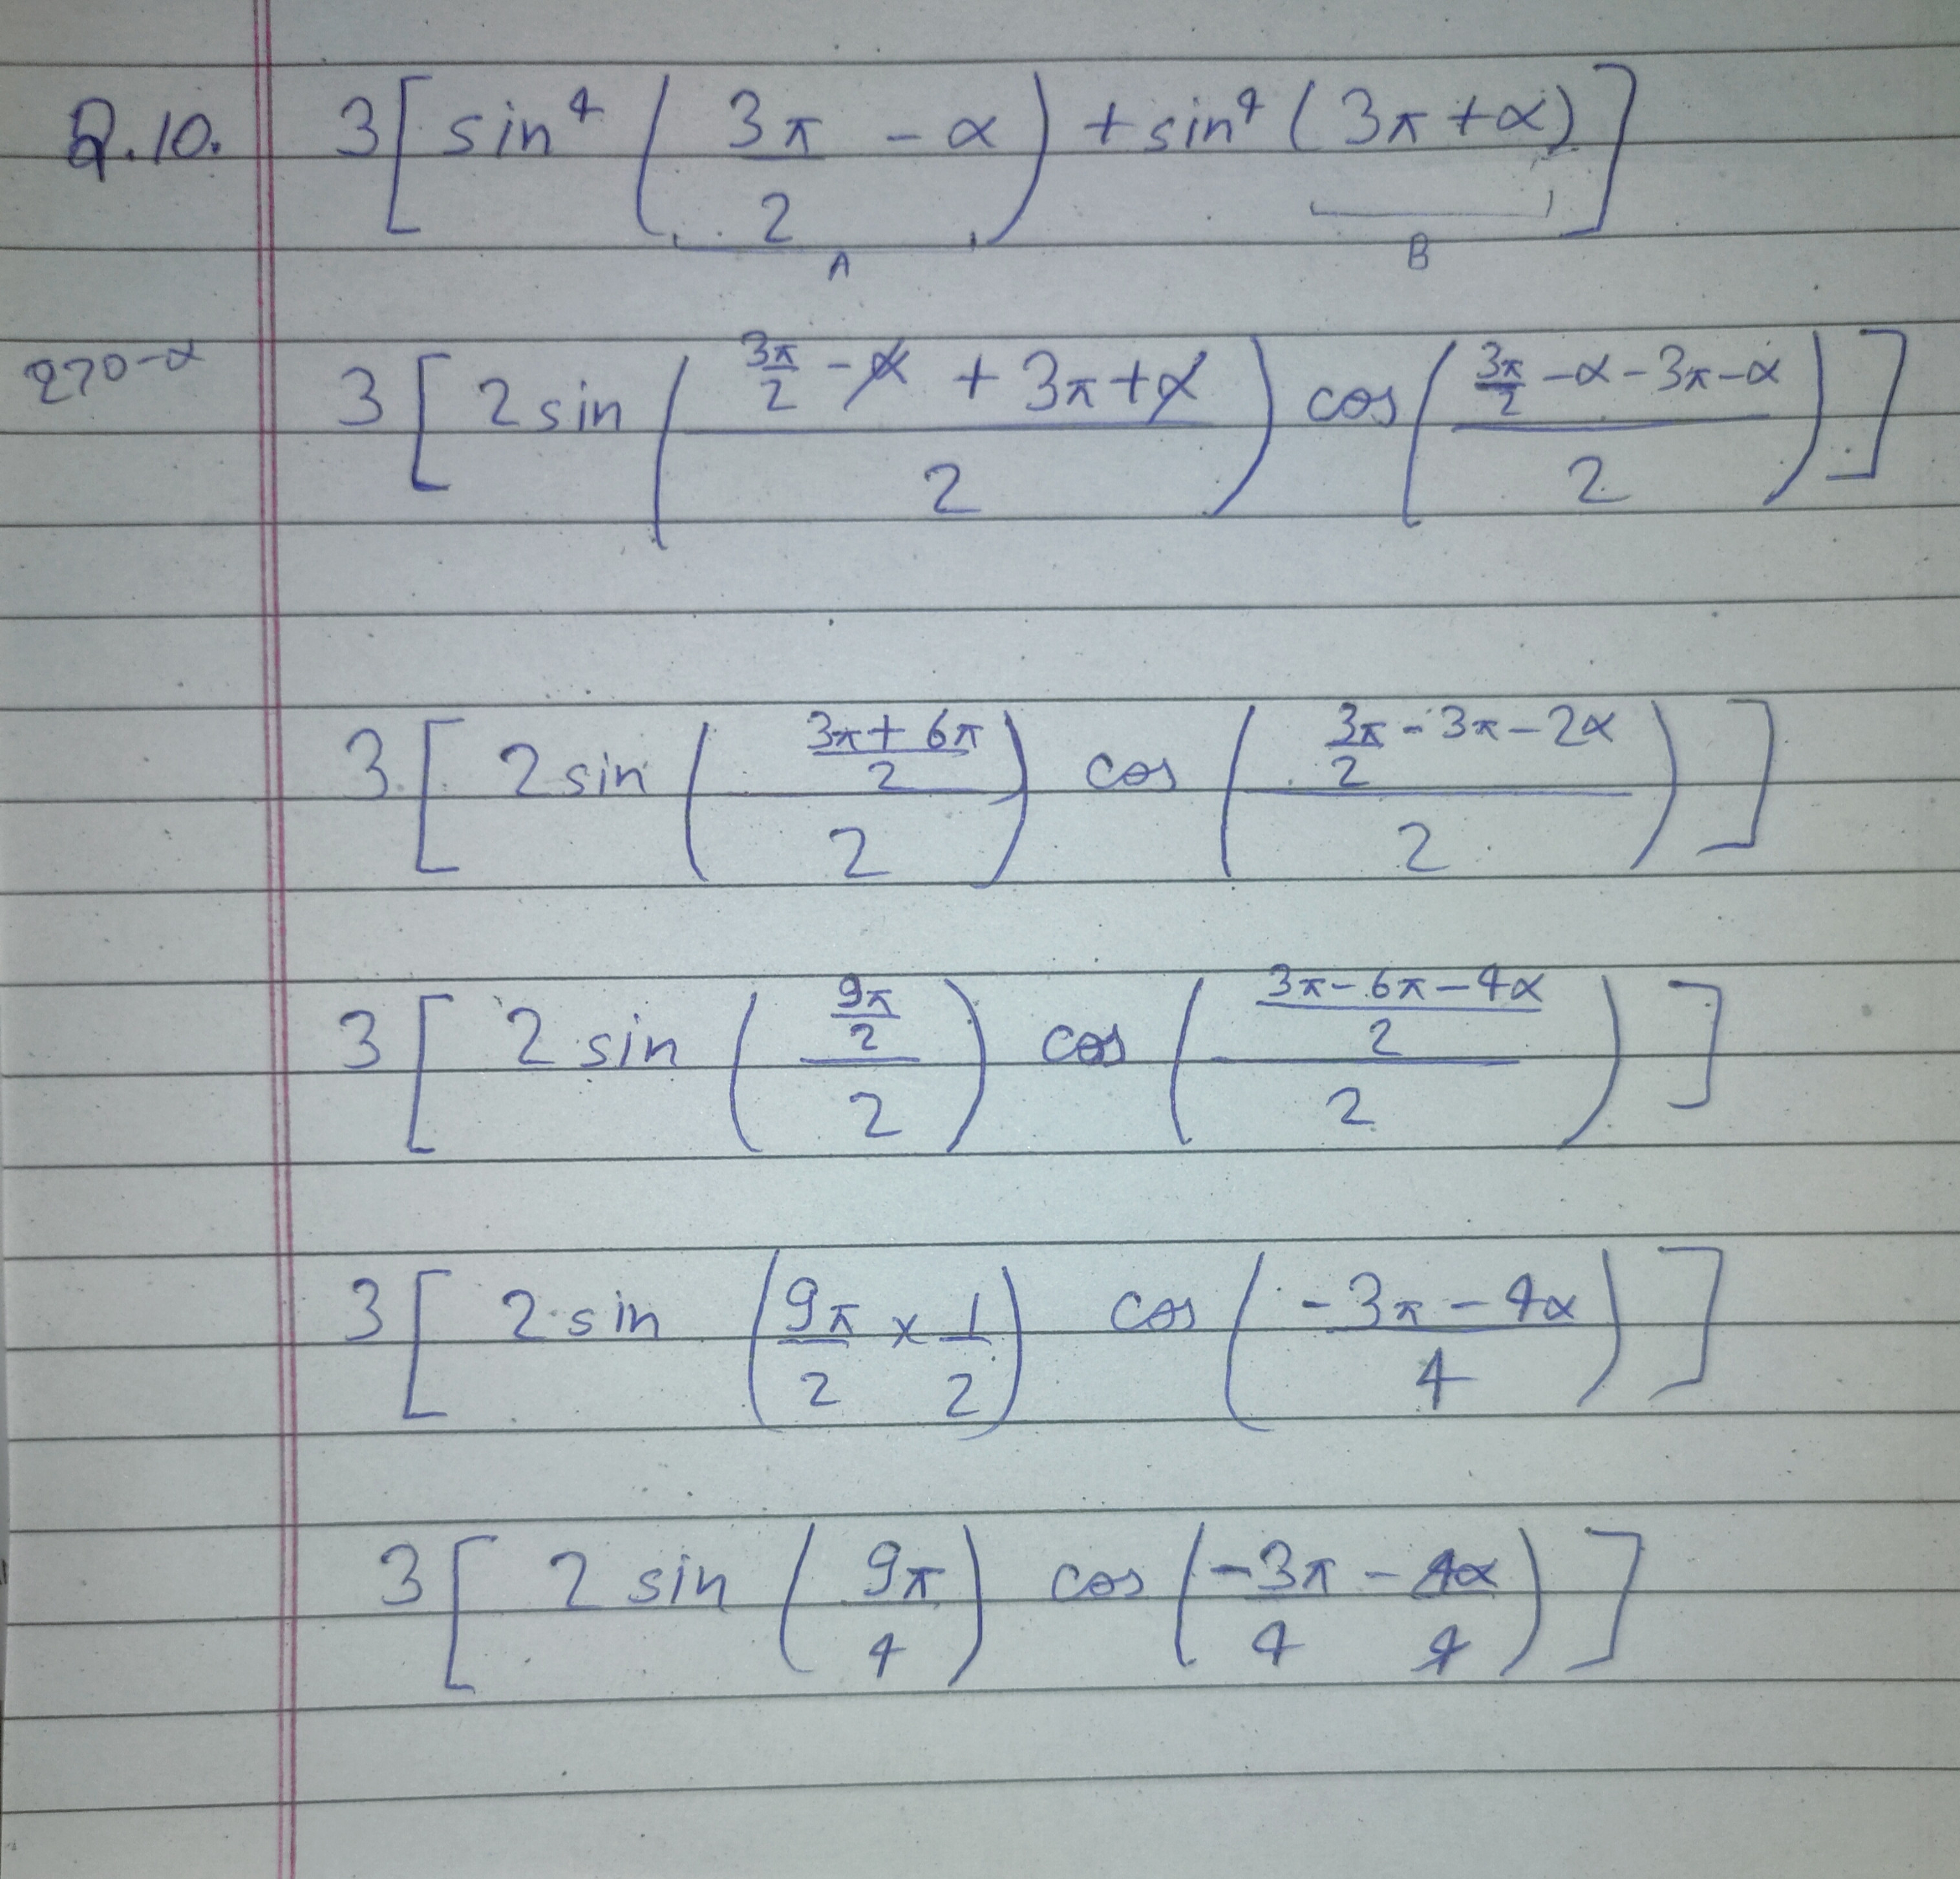 Q.10. 3[sin⁴(3π/2 - α) + sin⁴(3π + α)]
A B
270-α 3[2sin((3π/2 - α + 3π + α)/2) cos((3π/2 - α - 3π - α)/2)]
3[2sin(((3π + 6π)/2)/2) cos((3π/2 - 3π - 2α)/2)]
3[2sin((9π/2)/2) cos(((3π - 6π - 4α)/2)/2)]
3[2sin(9π/2 × 1/2) cos((-3π - 4α)/4)]
3[2sin(9π/4) cos(-3π/4 - 4α/4)]